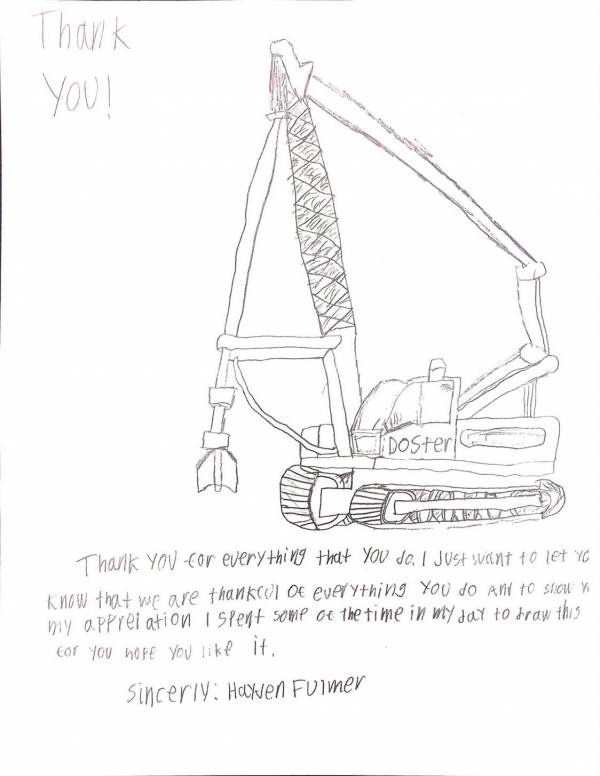 Thank
You!
DOSter
Thank You for everything that You do. I Just want to let Yo
know that we are thankful of everything You do And to show Y
my appreiation I spent some of the time in my day to draw this
for You hope You like it.
Sincerly: Hayden Fulmer